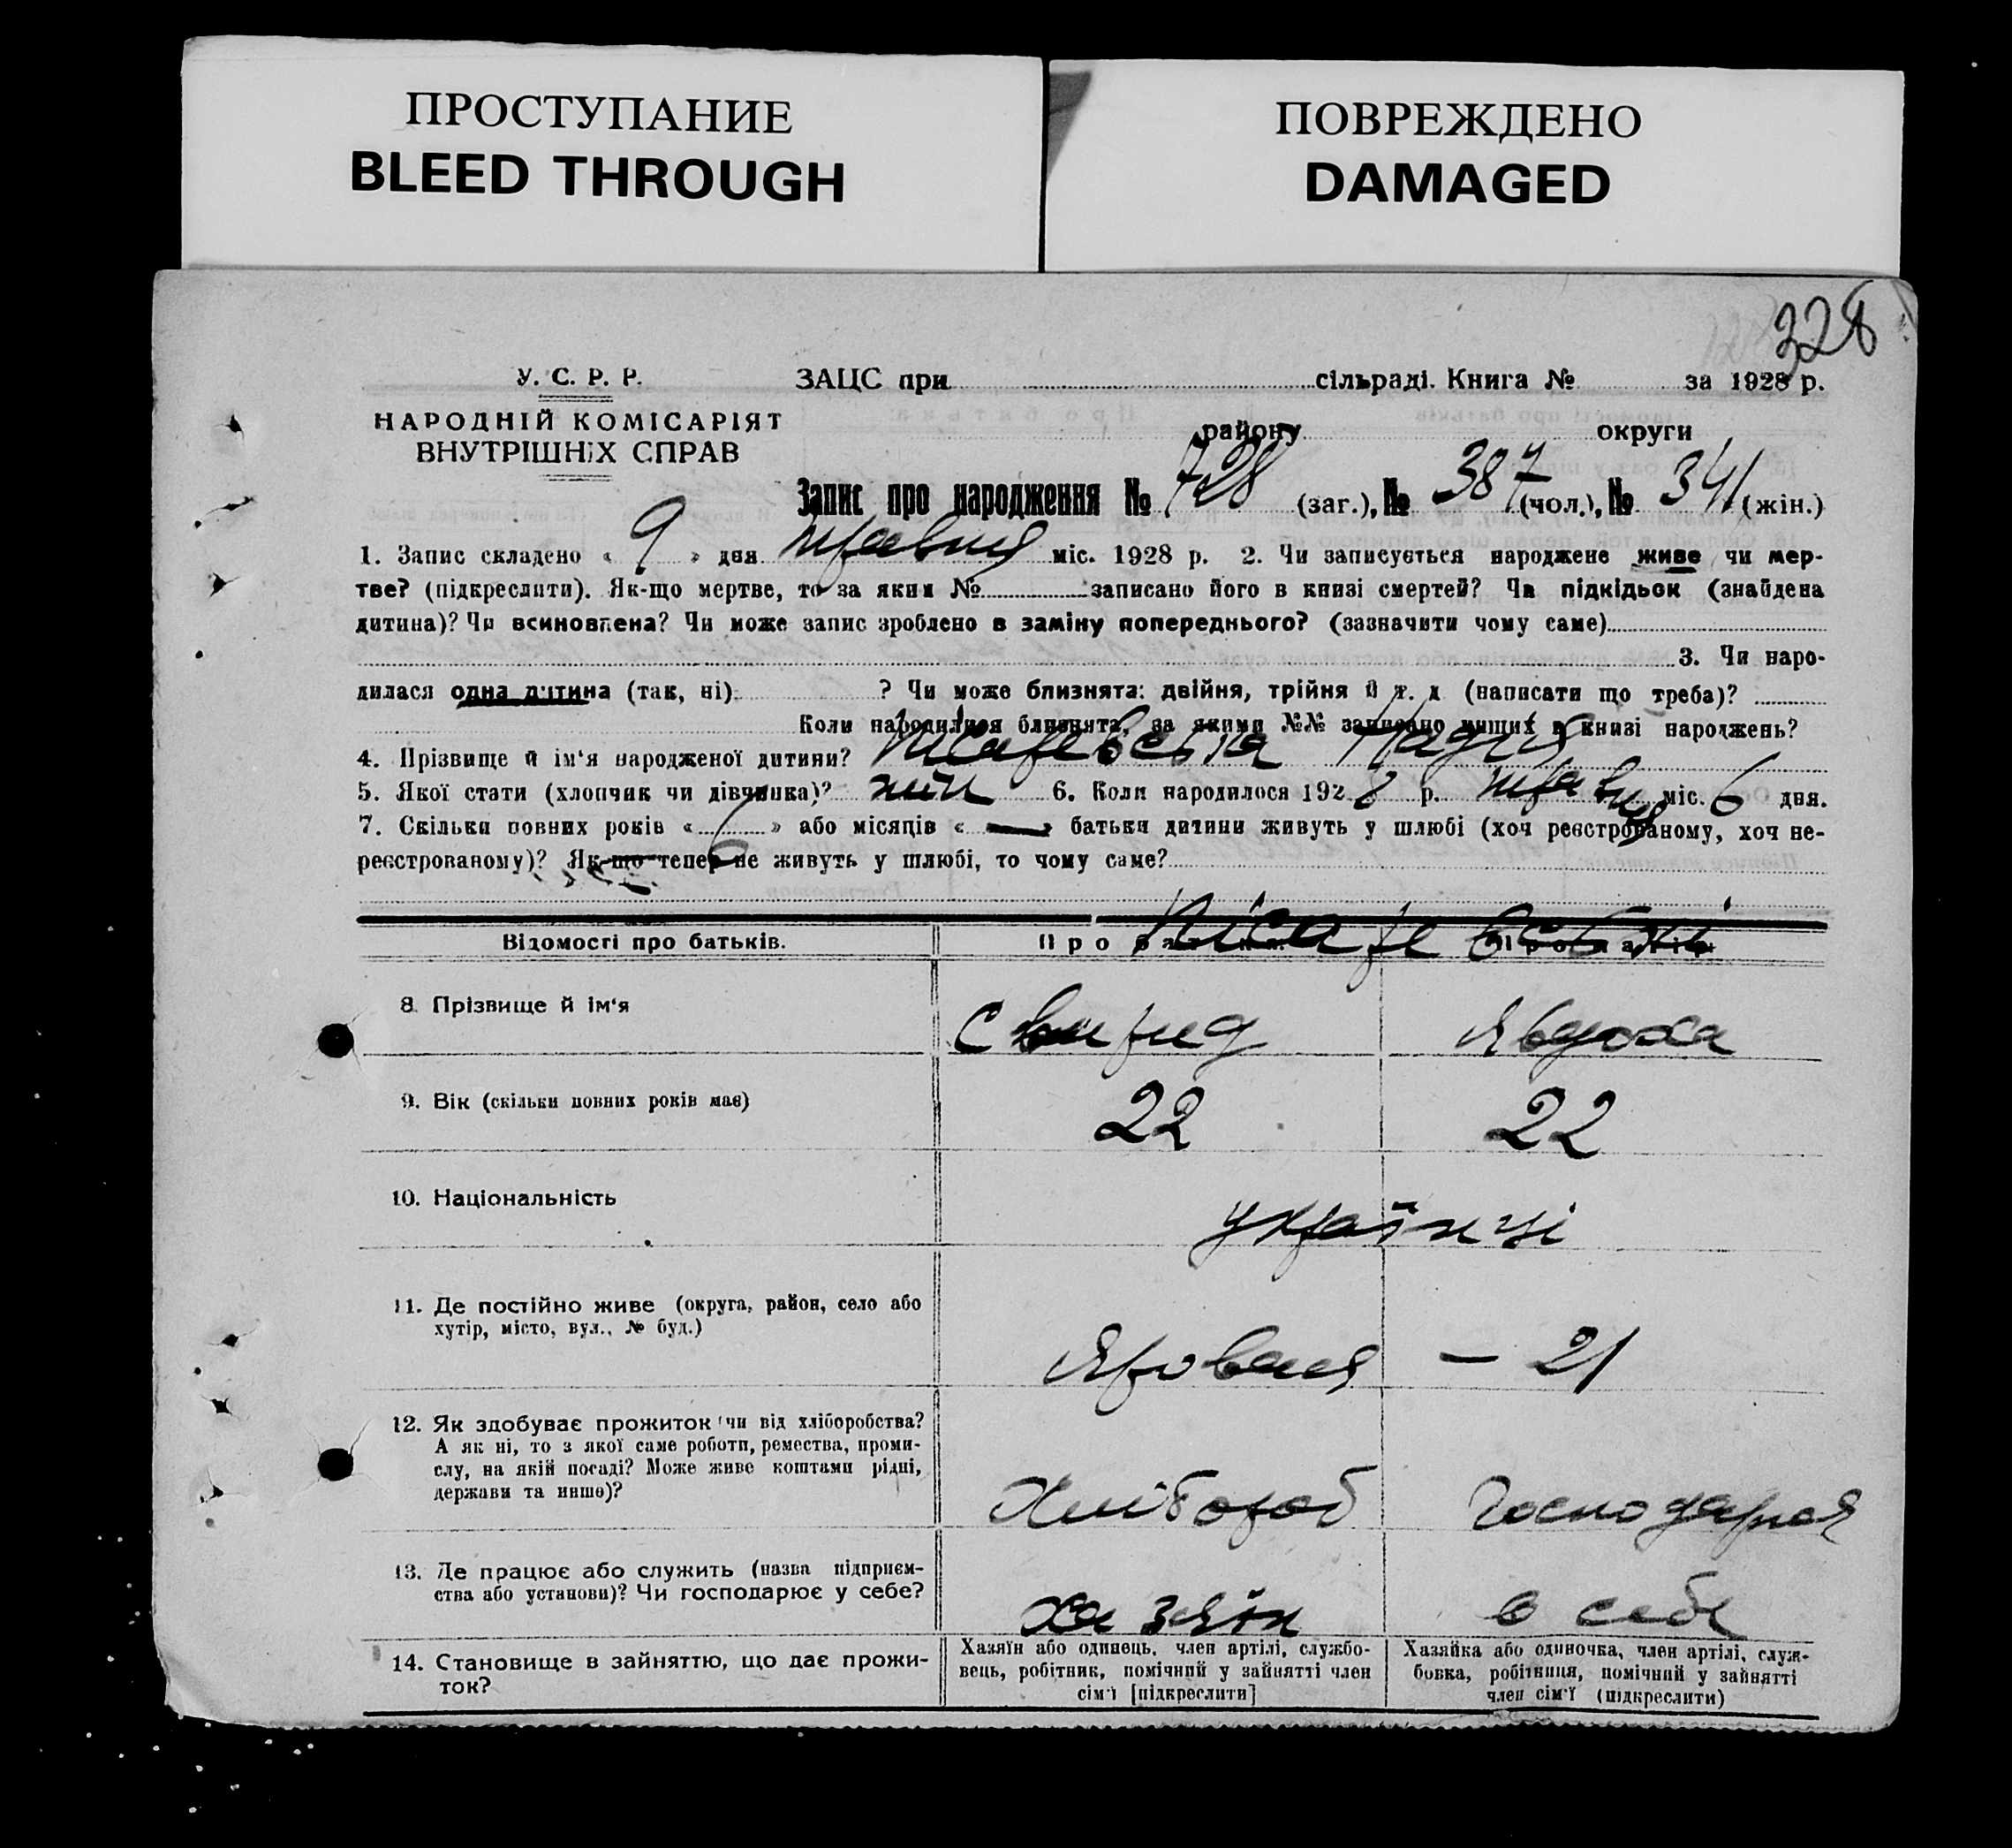 ПРОСТУПАНИЕ
BLEED THROUGH
ПОВРЕЖДЕНО
DAMAGED
328
У. С. Р. Р.
НАРОДНІЙ КОМІСАРІЯТ
ВНУТРІШНІХ СПРАВ
ЗАЦС при сільраді. Книга № за 1928 р.
району округи
Запис про народження № 728 (заг.), № 387 (чол.), № 341 (жін.)
1. Запис складено « 9 » дня травня міс. 1928 р. 2. Чи записується народжене живе чи мер-
тве? (підкреслити). Як-що мертве, то за яким № записано його в книзі смертей? Чи підкідьок (знайдена
дитина)? Чи всиновлена? Чи може запис зроблено в заміну попереднього? (зазначити чому саме)
3. Чи наро-
дилася одна дитина (так, ні) ? Чи може близнята: двійня, трійня й т. д (написати що треба)?
Коли народилися близнята, за якими №№ записано инших в книзі народжень?
4. Прізвище й ім'я народженої дитини? Надія
5. Якої стати (хлопчик чи дівчинка)? жін 6. Коли народилося 1928 р. травня міс. 6 дня.
7. Скільки повних років « » або місяців « — » батьки дитини живуть у шлюбі (хоч реєстрованому, хоч не-
реєстрованому)? Як-що тепер не живуть у шлюбі, то чому саме?
Відомості про батьків.
8. Прізвище й ім'я Свирид Явдоха
9. Вік (скільки повних років має) 22 22
10. Національність українці
11. Де постійно живе (округа, район, село або
хутір, місто, вул., № буд.) Яровая — 21
12. Як здобуває прожиток чи від хліборобства?
А як ні, то з якої саме роботи, ремества, проми-
слу, на якій посаді? Може живе коштами рідні,
держави та инше)? Хлібороб Господарка
13. Де працює або служить (назва підприєм-
ства або установи)? Чи господарює у себе? хазяїн в себе
14. Становище в зайняттю, що дає прожи-
ток?
Хазяїн або одинець, член артілі, службо-
вець, робітник, помічний у зайнятті член
сім'ї [підкреслити]
Хазяйка або одиночка, член артілі, служ-
бовка, робітниця, помічний у зайнятті
член сім'ї (підкреслити)